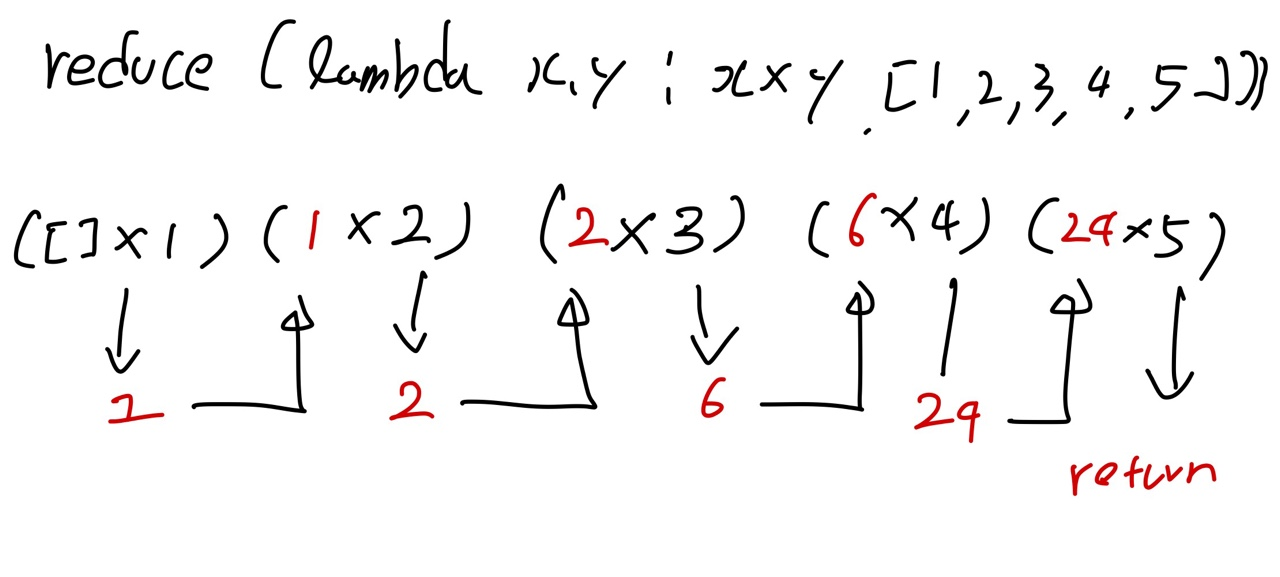 reduce (lambda x,y : x×y, [1,2,3,4,5]))
([]×1) (1×2) (2×3) (6×4) (24×5)
1 2 6 24
return